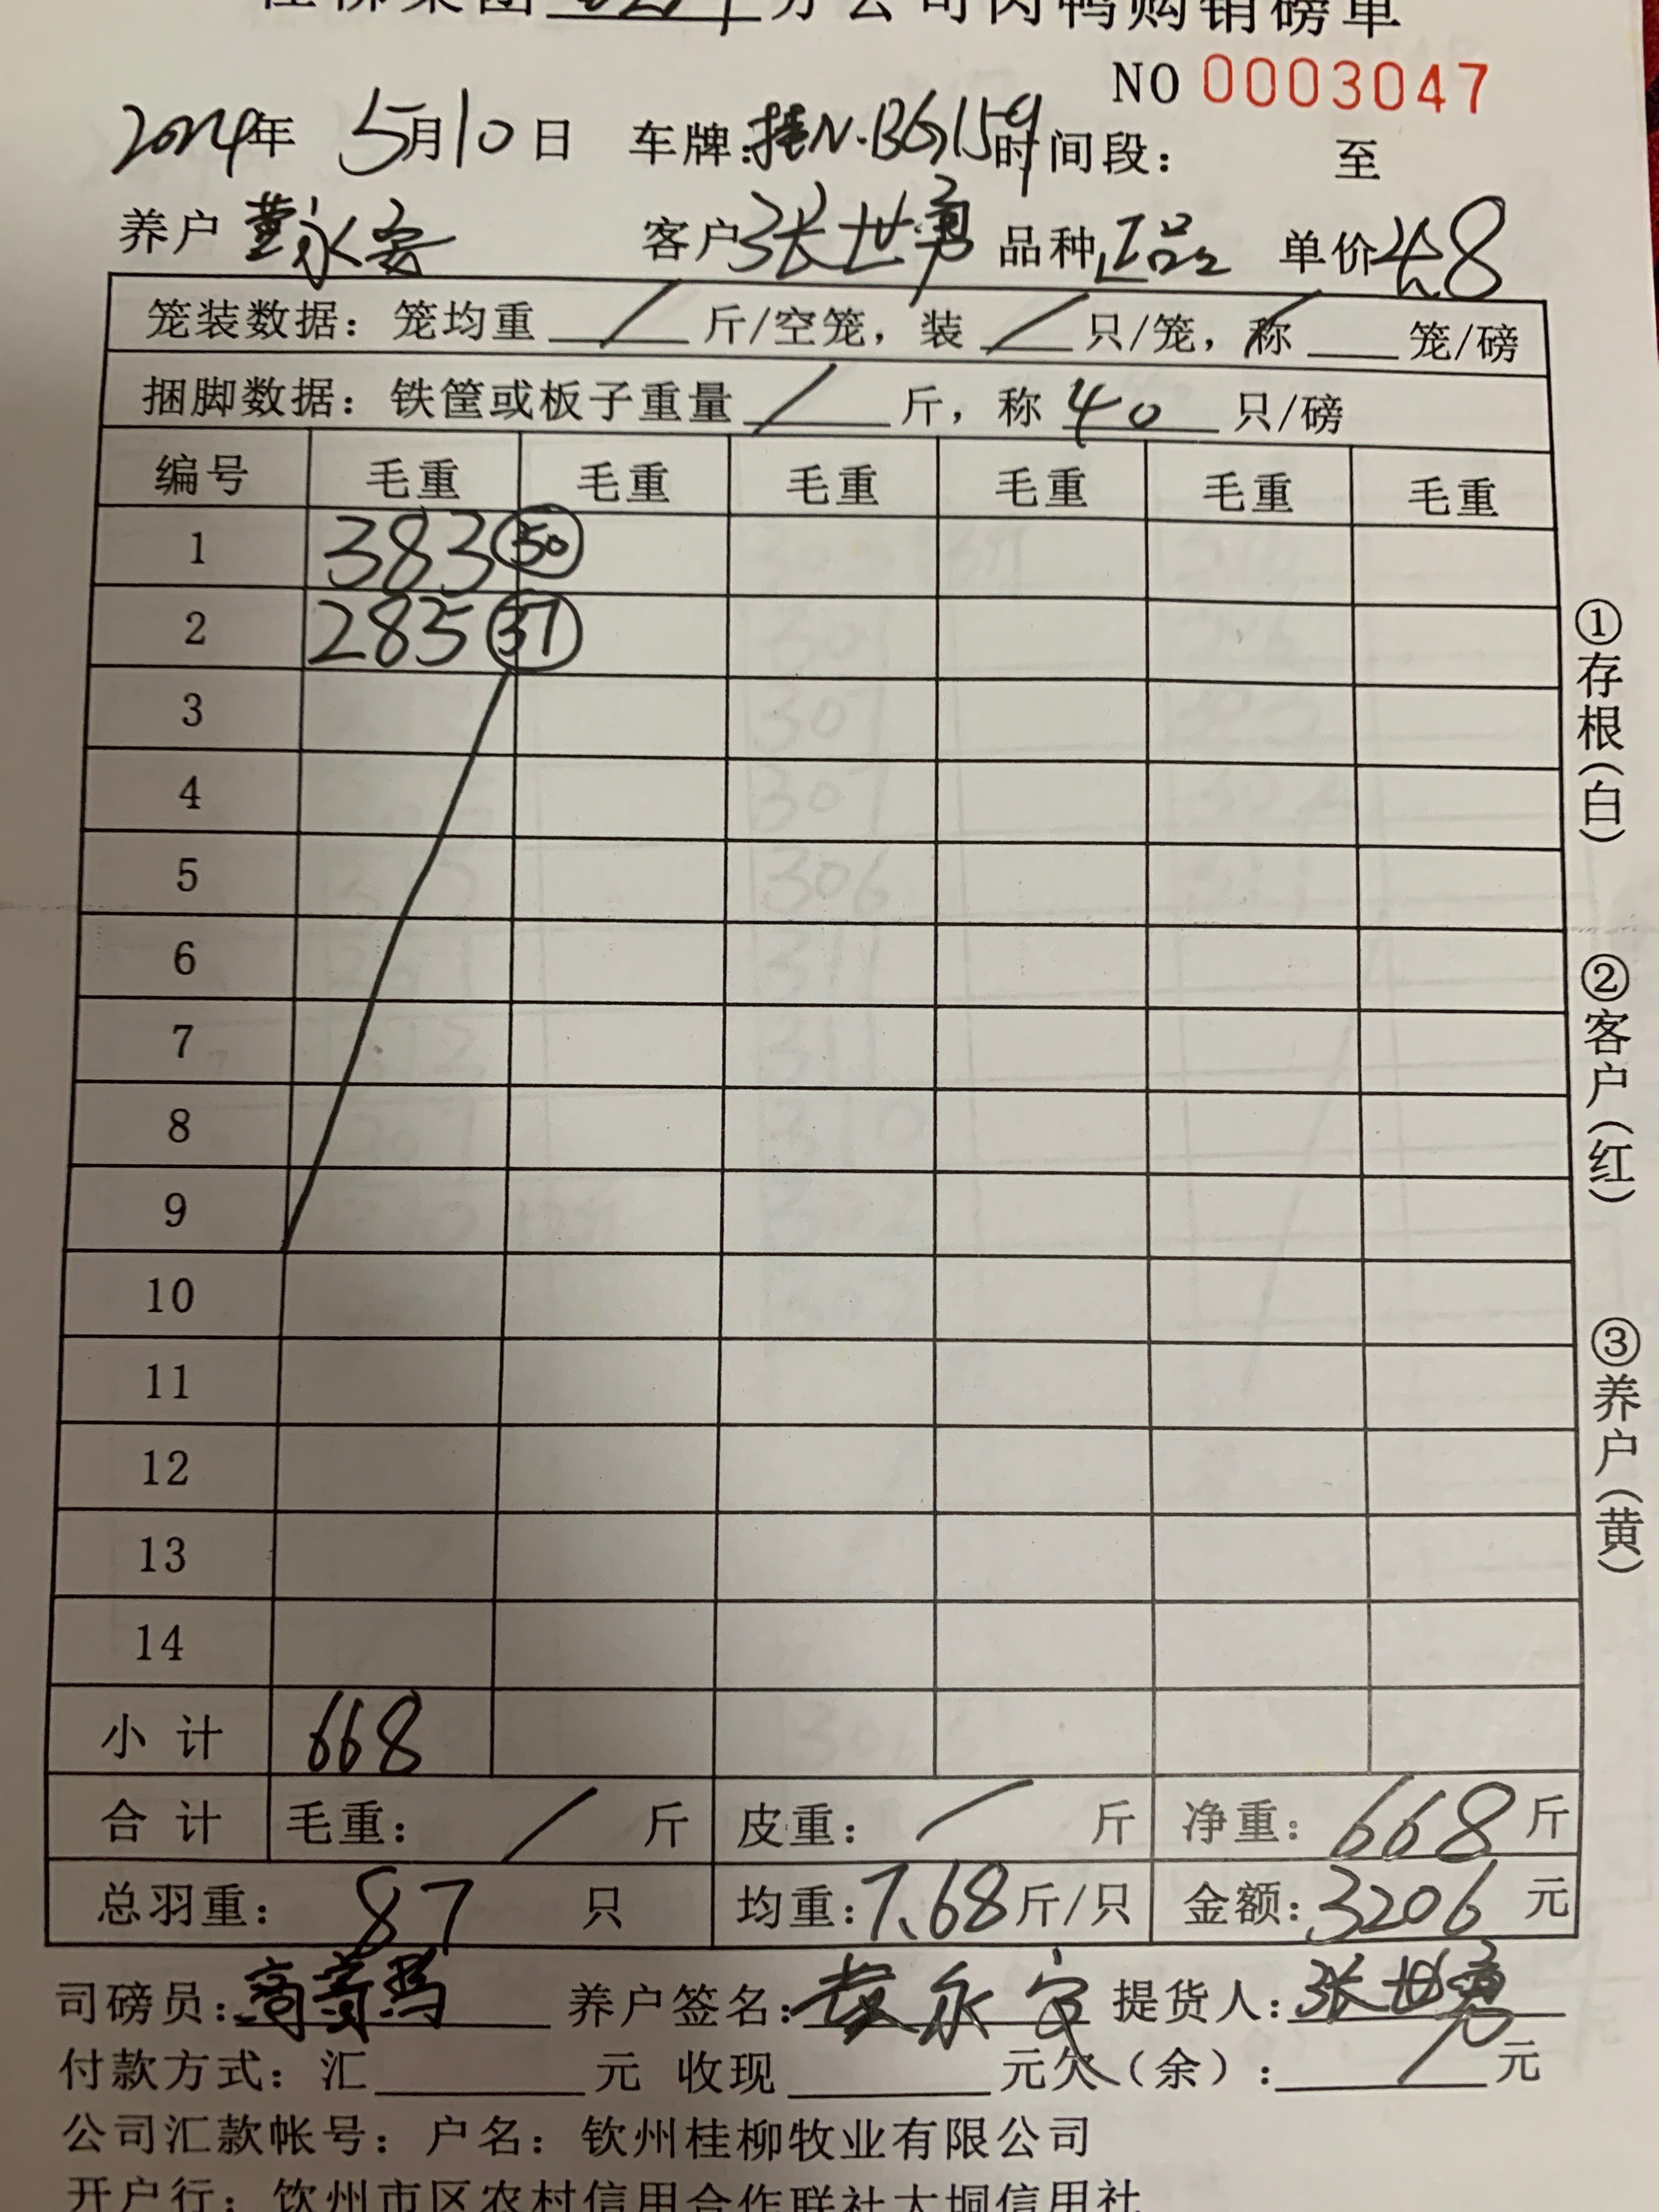 桂柳集团 分公司肉鸭购销磅单
NO 0003047
2024年 5月10日 车牌:桂N·B6159 时间段: 至
养户 黄永安 客户 张世勇 品种 正品 单价 4.8
笼装数据: 笼均重 / 斤/空笼, 装 / 只/笼, 称 / 笼/磅
捆脚数据: 铁筐或板子重量 / 斤, 称 40 只/磅
编号 毛重 毛重 毛重 毛重 毛重 毛重
1 383 50
2 285 37
3
4
5
6
7
8
9
10
11
12
13
14
小计 668
合计 毛重: / 斤 皮重: / 斤 净重: 668 斤
总羽重: 87 只 均重: 7.68 斤/只 金额: 3206 元
司磅员: 养户签名: 黄永安 提货人: 张世勇
付款方式: 汇 元 收现 元欠(余): / 元
公司汇款帐号: 户名: 钦州桂柳牧业有限公司
开户行: 钦州市区农村信用合作联社大垌信用社
①存根(白)
②客户(红)
③养户(黄)